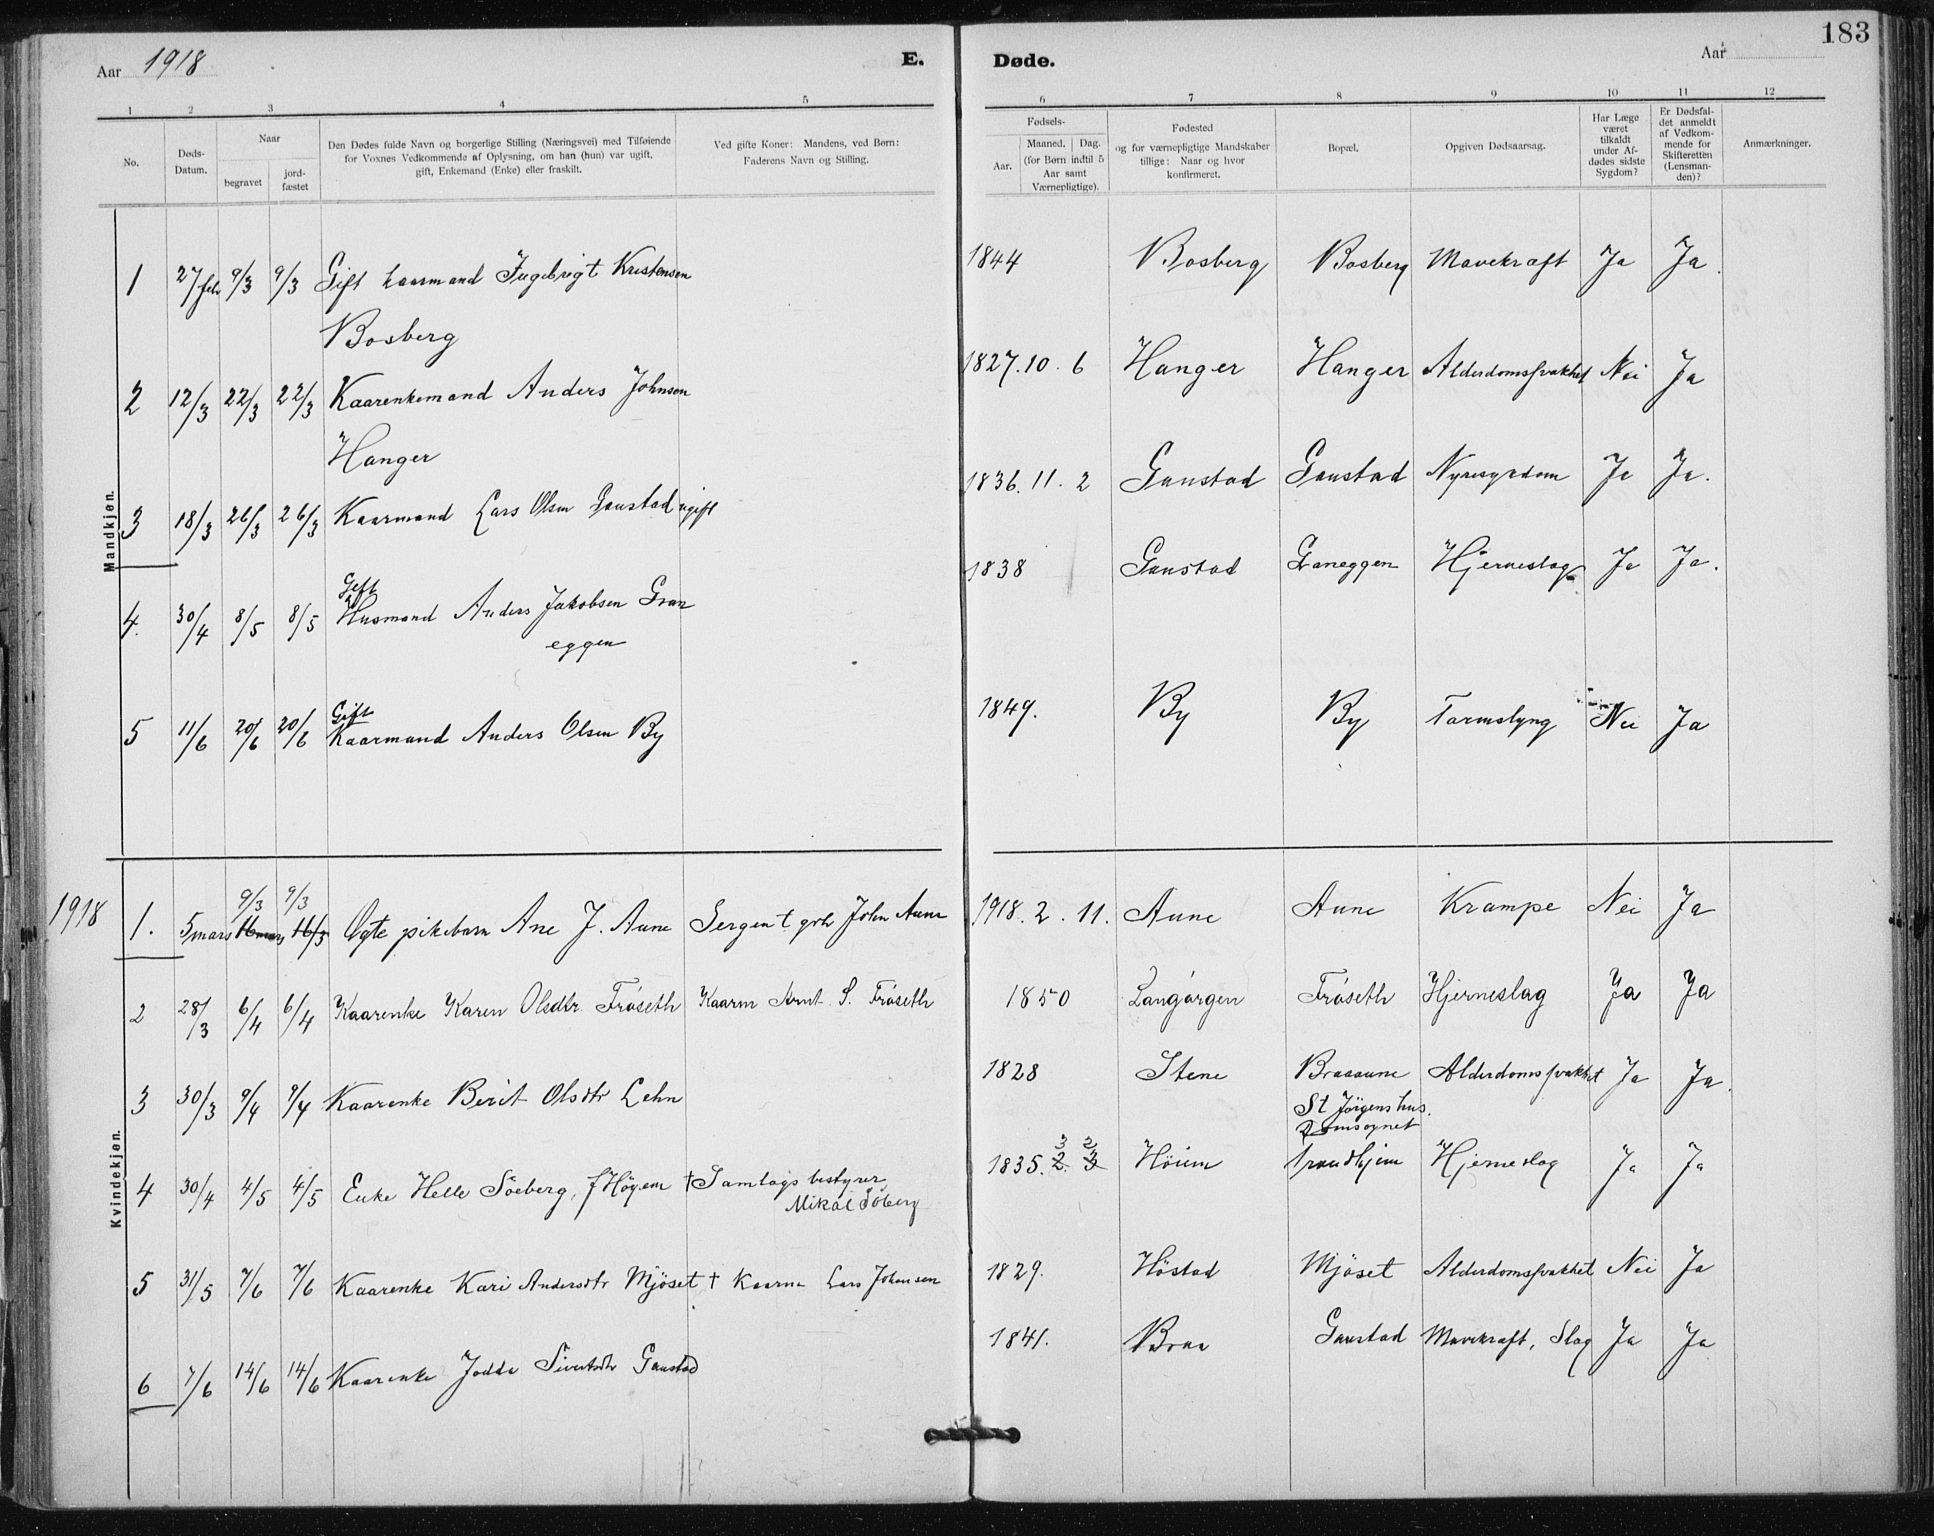 183
Aar 1918
E. Døde.
Aar
1 2 3 4 5 6 7 8 9 10 11 12
No.
Døds-
Datum.
Naar
begravet
jord-
fæstet
Den Dødes fulde Navn og borgerlige Stilling (Næringsvei) med Tilføiende
for Voxnes Vedkommende af Oplysning, om han (hun) var ugift,
gift, Enkemand (Enke) eller fraskilt.
Ved gifte Koner: Mandens, ved Børn:
Faderens Navn og Stilling.
Fødsels-
Aar.
Maaned. Dag.
(for Børn indtil 5
Aar samt
Værnepligtige).
Fødested
og for værnepligtige Mandskaber
tillige: Naar og hvor
konfirmeret.
Bopæl.
Opgiven Dødsaarsag.
Har Læge
været
tilkaldt
under Af-
dødes sidste
Sygdom?
Er Dødsfal-
det anmeldt
af Vedkom-
mende for
Skifteretten
(Lensman-
den)?
Anmærkninger.
Mandkjøn.
1 27/febr 9/3 9/3 Gift kaarmand Ingebrigt Kristensen 1844 Bosberg Bosberg Mavekræft Ja Ja.
Bosberg
2 12/3 22/3 22/3 Kaarenkemand Anders Johnsen 1827. 10. 6 Hanger Hanger Alderdomssvakhet Nei Ja
Hanger
3 18/3 26/3 26/3 Kaarmand Lars Olsen Gaustad ugift 1836. 11. 2 Gaustad Gaustad Nyresygdom Ja Ja.
Gift
4. 30/4 8/5 8/5 Husmand Anders Jakobsen Gran 1838 Gaustad Graneggen Hjerneslag Ja Ja.
eggen
Gift
5 11/6 20/6 20/6 Kaarmand Anders Olsen By 1849. By By Tarmslyng Nei Ja
Kvindekjøn.
9/3 9/3
1918 1. 5 mars 16 mars 16/3 Ægte pikebarn Ane J. Aune Sergent grbr John Aune 1918. 2. 11. Aune Aune Krampe Nei Ja
2 28/3 6/4 6/4 Kaarenke Karen Olsdtr. Frøseth Kaarm Arnt S. Frøseth 1850 Langørgen Frøseth Hjerneslag Ja Ja
3 30/3 9/4 9/4 Kaarenke Berit Olsdtr Lehn 1828 Stene Braaaune Alderdomssvakhet Ja Ja.
St Jörgens hus.
Domsognet
3 2
4 30/4 4/5 4/5 Enke Helle Söeberg, f Höyem † Samlags bestyrer 1835. 2. 3 Höiem Trondhjem Hjerneslag Ja Ja
Mikal Söberg
5 31/5 7/6 7/6 Kaarenke Kari Andersdtr Mjöset † Kaarm Lars Johnsen 1829. Höstad Mjöset Alderdomssvakhet Nei Ja
6 7/6 14/6 14/6 Kaarenke Jodde Sivertsdtr Gaustad 1841. Braa Gaustad Mavekræft, Slag Ja Ja